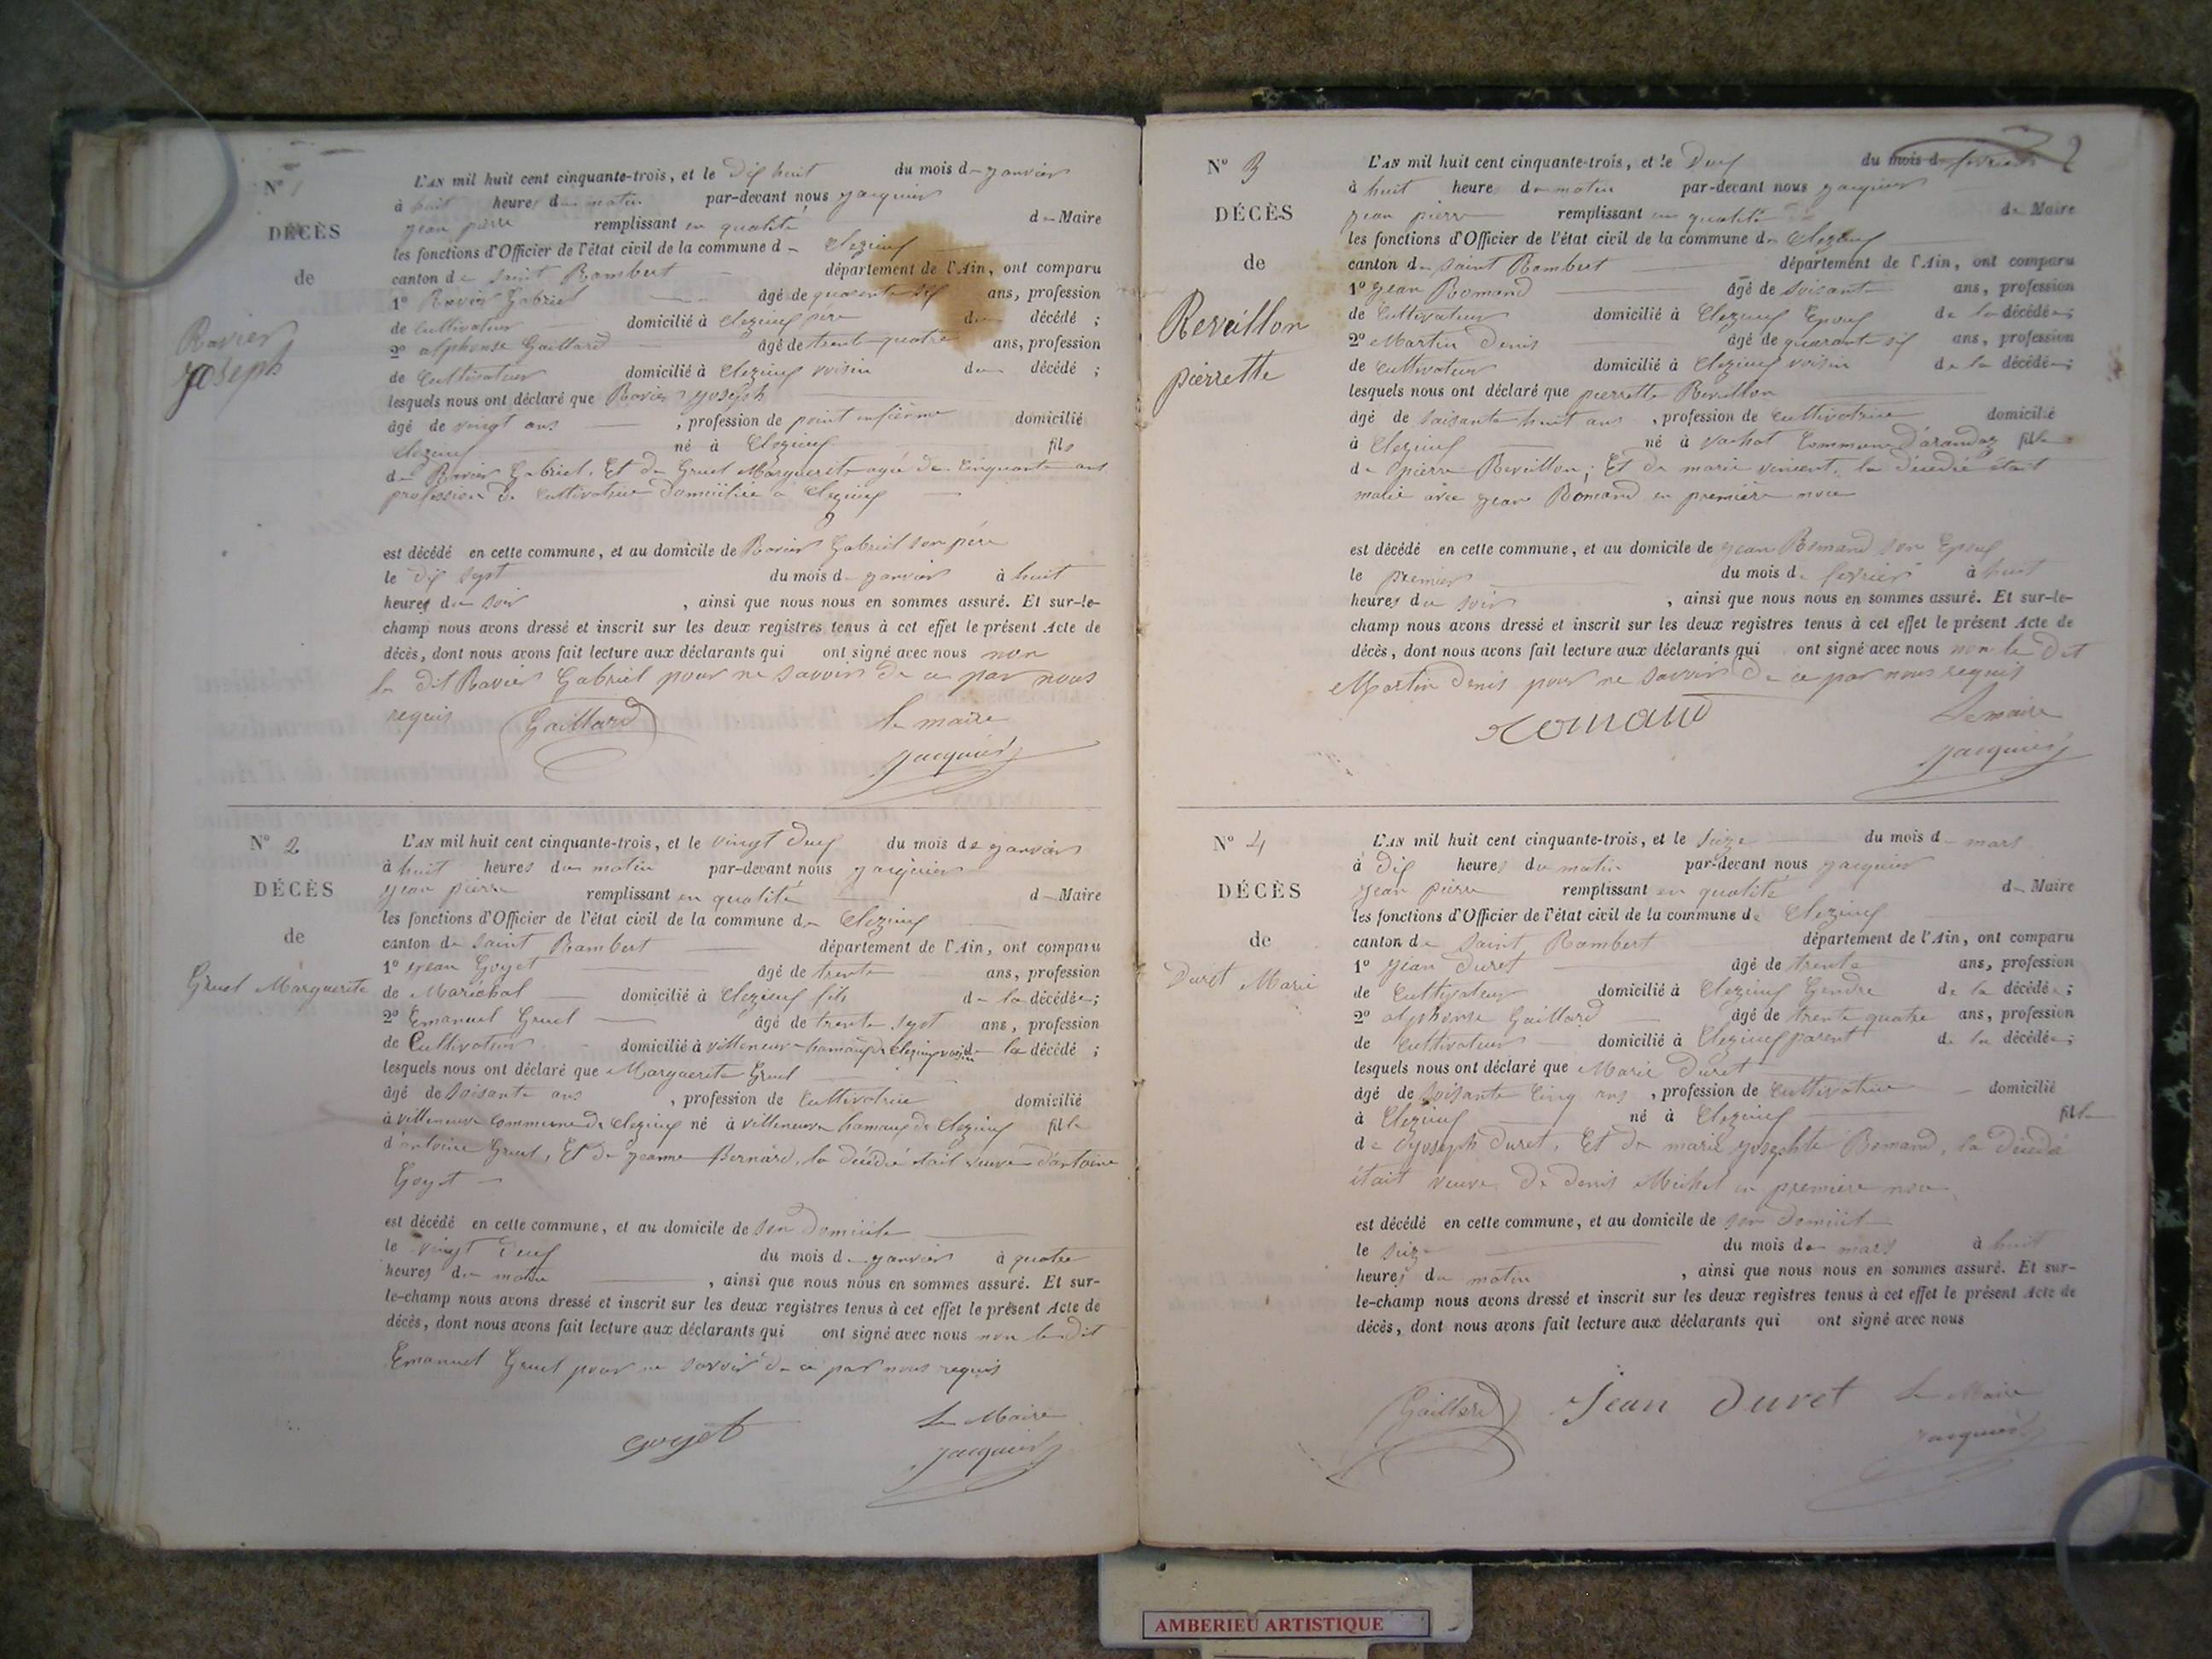 N° 1
DÉCÈS
de
Ravier
Joseph
L'AN mil huit cent cinquante-trois, et le dix huit du mois de janvier
à huit heures du matin par-devant nous jacquier
jean pierre remplissant en qualité de Maire
les fonctions d'Officier de l'état civil de la commune de Clezieux
canton de Saint Rambert département de l'Ain, ont comparu
1° Ravier Gabriel âgé de quarante six ans, profession
de Cultivateur domicilié à Clezieux père du décédé ;
2° alphonse Gaillard âgé de trente quatre ans, profession
de Cultivateur domicilié à Clezieux voisin du décédé ;
lesquels nous ont déclaré que Ravier joseph
âgé de vingt ans , profession de point infirme domicilié
Clezieux né à Clezieux fils
de Ravier Gabriel, Et de Gruel Marguerite agée de Cinquante ans
profession de Cultivatrice domicilée a Clezieux
est décédé en cette commune, et au domicile de Ravier Gabriel son père
le dix sept du mois de janvier à huit
heures du soir , ainsi que nous nous en sommes assuré. Et sur-le-
champ nous avons dressé et inscrit sur les deux registres tenus à cet effet le présent Acte de
décès, dont nous avons fait lecture aux déclarants qui ont signé avec nous non
le dit Ravier Gabriel pour ne savoir de ce par nous
requis Gaillard Le maire
jacquier
N° 2
DÉCÈS
de
Gruel Marguerite
L'AN mil huit cent cinquante-trois, et le vingt deux du mois de janvier
à huit heures du matin par-devant nous jacquier
jean pierre remplissant en qualité de Maire
les fonctions d'Officier de l'état civil de la commune de Clezieux
canton de Saint Rambert département de l'Ain, ont comparu
1° jean Goyet âgé de trente ans, profession
de Maréchal domicilié à Clezieux fils de la décédée;
2° Emanuel Gruel âgé de trente sept ans, profession
de Cultivateur domicilié à villeneuve hamaux de Clezieux voisin de la décédé ;
lesquels nous ont déclaré que Marguerite Gruel
âgé de soisante ans , profession de Cultivatrice domicilié
à villeneuve commune de Clezieux né à villeneuve hamaux de Clezieux fille
d'antoine Gruel, Et de jeanne Bernard, la décédé était veuve d'antoine
Goyet
est décédé en cette commune, et au domicile de son domicile
le vingt deux du mois de janvier à quatre
heures du matin , ainsi que nous nous en sommes assuré. Et sur-
le-champ nous avons dressé et inscrit sur les deux registres tenus à cet effet le présent Acte de
décès, dont nous avons fait lecture aux déclarants qui ont signé avec nous non le dit
Emanuel Gruel pour ne savoir de ce par nous requis
goyet Le Maire
jacquier
2
N° 3
DÉCÈS
de
Reveillon
pierrette
L'AN mil huit cent cinquante-trois, et le Deux du mois de fevrier
à huit heures du matin par-devant nous jacquier
jean pierre remplissant en qualité de Maire
les fonctions d'Officier de l'état civil de la commune de Clezieux
canton de Saint Rambert département de l'Ain, ont comparu
1° jean Romand âgé de soisante ans, profession
de Cultivateur domicilié à Clezieux Epoux de la décédée;
2° Martin Denis âgé de quarante six ans, profession
de Cultivateur domicilié à Clezieux voisin de la décédée;
lesquels nous ont déclaré que pierrette Revillon
âgé de soisante huit ans , profession de Cultivatrice domicilié
à Clezieux né à vachat Commune d'arandaz fille
de pierre Revillon; Et de marie vincent, la décédé était
marié avec jean Romand en première noce
est décédé en cette commune, et au domicile de jean Romand son Epoux
le premier du mois de fevrier à huit
heures du soir , ainsi que nous nous en sommes assuré. Et sur-le-
champ nous avons dressé et inscrit sur les deux registres tenus à cet effet le présent Acte de
décès, dont nous avons fait lecture aux déclarants qui ont signé avec nous non le dit
Martin Denis pour ne savoir de ce par nous requis
romand Le maire
jacquier
N° 4
DÉCÈS
de
Duret Marie
L'AN mil huit cent cinquante-trois, et le seize du mois de mars
à dix heures du matin par-devant nous jacquier
jean pierre remplissant en qualité de Maire
les fonctions d'Officier de l'état civil de la commune de Clezieux
canton de Saint Rambert département de l'Ain, ont comparu
1° jean Duret âgé de trente ans, profession
de Cultivateur domicilié à Clezieux Gendre de la décédée;
2° alphonse Gaillard âgé de trente quatre ans, profession
de Cultivateur domicilié à Clezieux parent de la décédée;
lesquels nous ont déclaré que Marie Duret
âgé de soisante Cinq ans , profession de Cultivatrice domicilié
à Clezieux né à Clezieux fille
de joseph Duret, Et de marie josephte Romand, la décédé
était veuve de denis Michel en première noce
est décédé en cette commune, et au domicile de son domicile
le seize du mois de mars à huit
heures du matin , ainsi que nous nous en sommes assuré. Et sur-
le-champ nous avons dressé et inscrit sur les deux registres tenus à cet effet le présent Acte de
décès, dont nous avons fait lecture aux déclarants qui ont signé avec nous
Gaillard Jean duret Le Maire
jacquier
AMBERIEU ARTISTIQUE